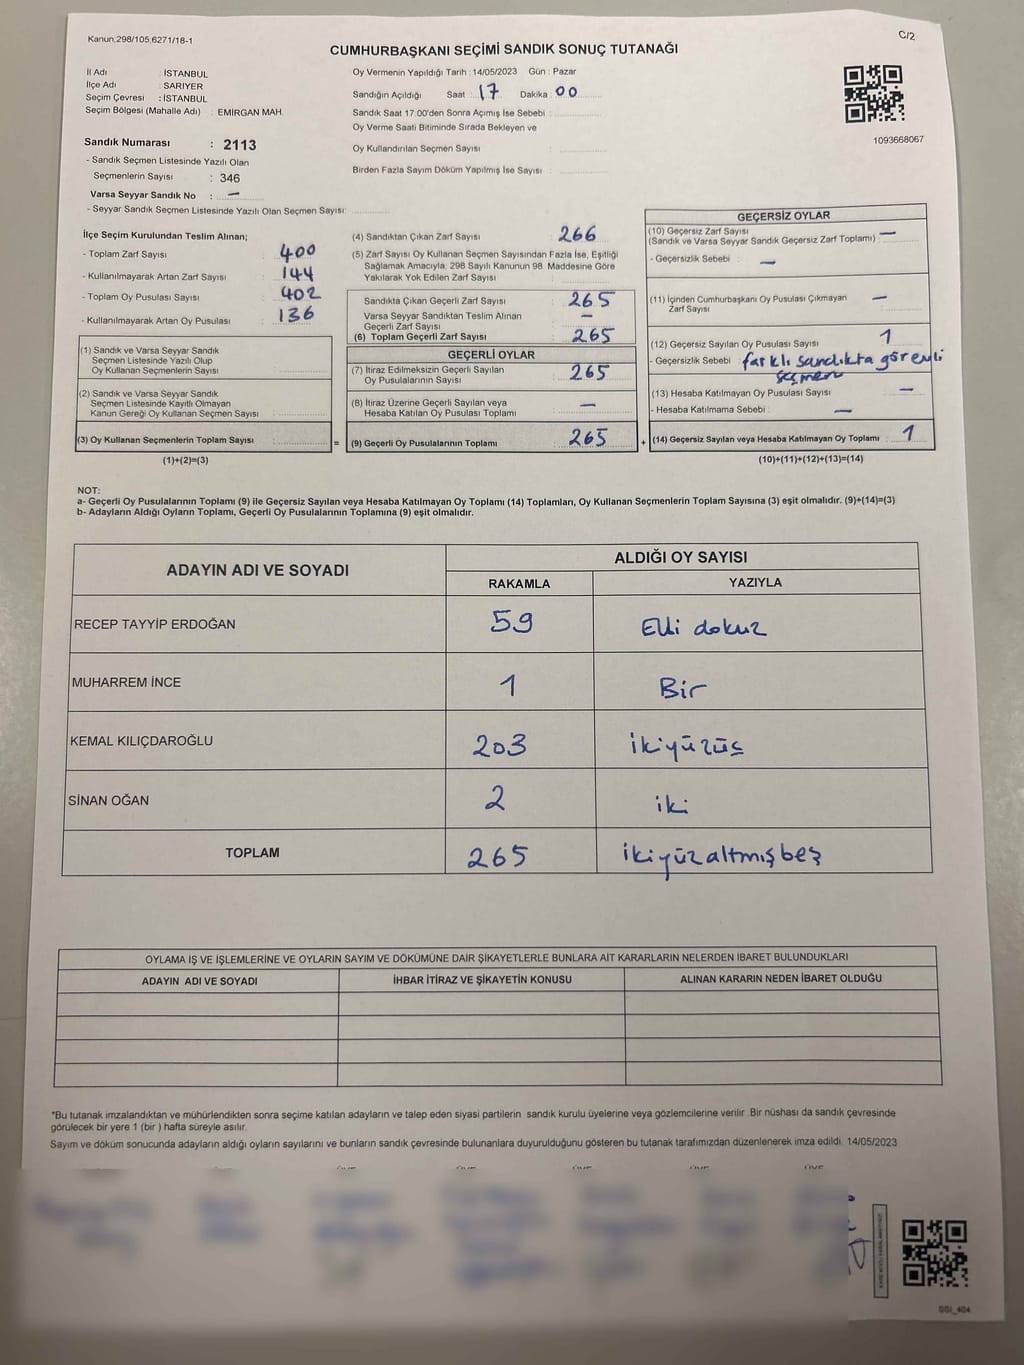 Kanun,298/105,6271/18-1
C/2
CUMHURBAŞKANI SEÇİMİ SANDIK SONUÇ TUTANAĞI
İl Adı : İSTANBUL
İlçe Adı : SARIYER
Seçim Çevresi : İSTANBUL
Seçim Bölgesi (Mahalle Adı) : EMIRGAN MAH.
Sandık Numarası : 2113
- Sandık Seçmen Listesinde Yazılı Olan
Seçmenlerin Sayısı : 346
Varsa Seyyar Sandık No : —
- Seyyar Sandık Seçmen Listesinde Yazılı Olan Seçmen Sayısı:
Oy Vermenin Yapıldığı Tarih : 14/05/2023 Gün : Pazar
Sandığın Açıldığı Saat : 17 Dakika : 00
Sandık Saat 17.00'den Sonra Açımış İse Sebebi :
Oy Verme Saati Bitiminde Sırada Bekleyen ve
Oy Kullandırılan Seçmen Sayısı :
Birden Fazla Sayım Döküm Yapılmış İse Sayısı :
1093668067
İlçe Seçim Kurulundan Teslim Alınan;
- Toplam Zarf Sayısı : 400
- Kullanılmayarak Artan Zarf Sayısı : 144
- Toplam Oy Pusulası Sayısı : 402
- Kullanılmayarak Artan Oy Pusulası : 136
(1) Sandık ve Varsa Seyyar Sandık
Seçmen Listesinde Yazılı Olup
Oy Kullanan Seçmenlerin Sayısı :
(2) Sandık ve Varsa Seyyar Sandık
Seçmen Listesinde Kayıtlı Olmayan
Kanun Gereği Oy Kullanan Seçmen Sayısı :
(3) Oy Kullanan Seçmenlerin Toplam Sayısı :
(1)+(2)=(3)
=
(4) Sandıktan Çıkan Zarf Sayısı : 266
(5) Zarf Sayısı Oy Kullanan Seçmen Sayısından Fazla İse, Eşitliği
Sağlamak Amacıyla; 298 Sayılı Kanunun 98. Maddesine Göre
Yakılarak Yok Edilen Zarf Sayısı :
Sandıkta Çıkan Geçerli Zarf Sayısı : 265
Varsa Seyyar Sandıktan Teslim Alınan
Geçerli Zarf Sayısı : —
(6) Toplam Geçerli Zarf Sayısı : 265
GEÇERLİ OYLAR
(7) İtiraz Edilmeksizin Geçerli Sayılan
Oy Pusulalarının Sayısı : 265
(8) İtiraz Üzerine Geçerli Sayılan veya
Hesaba Katılan Oy Pusulası Toplamı : —
(9) Geçerli Oy Pusulalarının Toplamı : 265
+
GEÇERSİZ OYLAR
(10) Geçersiz Zarf Sayısı
(Sandık ve Varsa Seyyar Sandık Geçersiz Zarf Toplamı) : —
- Geçersizlik Sebebi : —
(11) İçinden Cumhurbaşkanı Oy Pusulası Çıkmayan
Zarf Sayısı : —
(12) Geçersiz Sayılan Oy Pusulası Sayısı : 1
- Geçersizlik Sebebi : farklı sandıkta görevli
seçmen
(13) Hesaba Katılmayan Oy Pusulası Sayısı : —
- Hesaba Katılmama Sebebi : —
(14) Geçersiz Sayılan veya Hesaba Katılmayan Oy Toplamı : 1
(10)+(11)+(12)+(13)=(14)
NOT:
a- Geçerli Oy Pusulalarının Toplamı (9) ile Geçersiz Sayılan veya Hesaba Katılmayan Oy Toplamı (14) Toplamları, Oy Kullanan Seçmenlerin Toplam Sayısına (3) eşit olmalıdır. (9)+(14)=(3)
b- Adayların Aldığı Oyların Toplamı, Geçerli Oy Pusulalarının Toplamına (9) eşit olmalıdır.
ADAYIN ADI VE SOYADI
ALDIĞI OY SAYISI
RAKAMLA YAZIYLA
RECEP TAYYİP ERDOĞAN 59 Elli dokuz
MUHARREM İNCE 1 Bir
KEMAL KILIÇDAROĞLU 203 ikiyüzüç
SİNAN OĞAN 2 iki
TOPLAM 265 ikiyüzaltmışbeş
OYLAMA İŞ VE İŞLEMLERİNE VE OYLARIN SAYIM VE DÖKÜMÜNE DAİR ŞİKAYETLERLE BUNLARA AİT KARARLARIN NELERDEN İBARET BULUNDUKLARI
ADAYIN ADI VE SOYADI İHBAR İTİRAZ VE ŞİKAYETİN KONUSU ALINAN KARARIN NEDEN İBARET OLDUĞU
*Bu tutanak imzalandıktan ve mühürlendikten sonra seçime katılan adayların ve talep eden siyasi partilerin sandık kurulu üyelerine veya gözlemcilerine verilir. Bir nüshası da sandık çevresinde
görülecek bir yere 1 (bir ) hafta süreyle asılır.
Sayım ve döküm sonucunda adayların aldığı oyların sayılarını ve bunların sandık çevresinde bulunanlara duyurulduğunu gösteren bu tutanak tarafımızdan düzenlenerek imza edildi. 14/05/2023
SSI_404